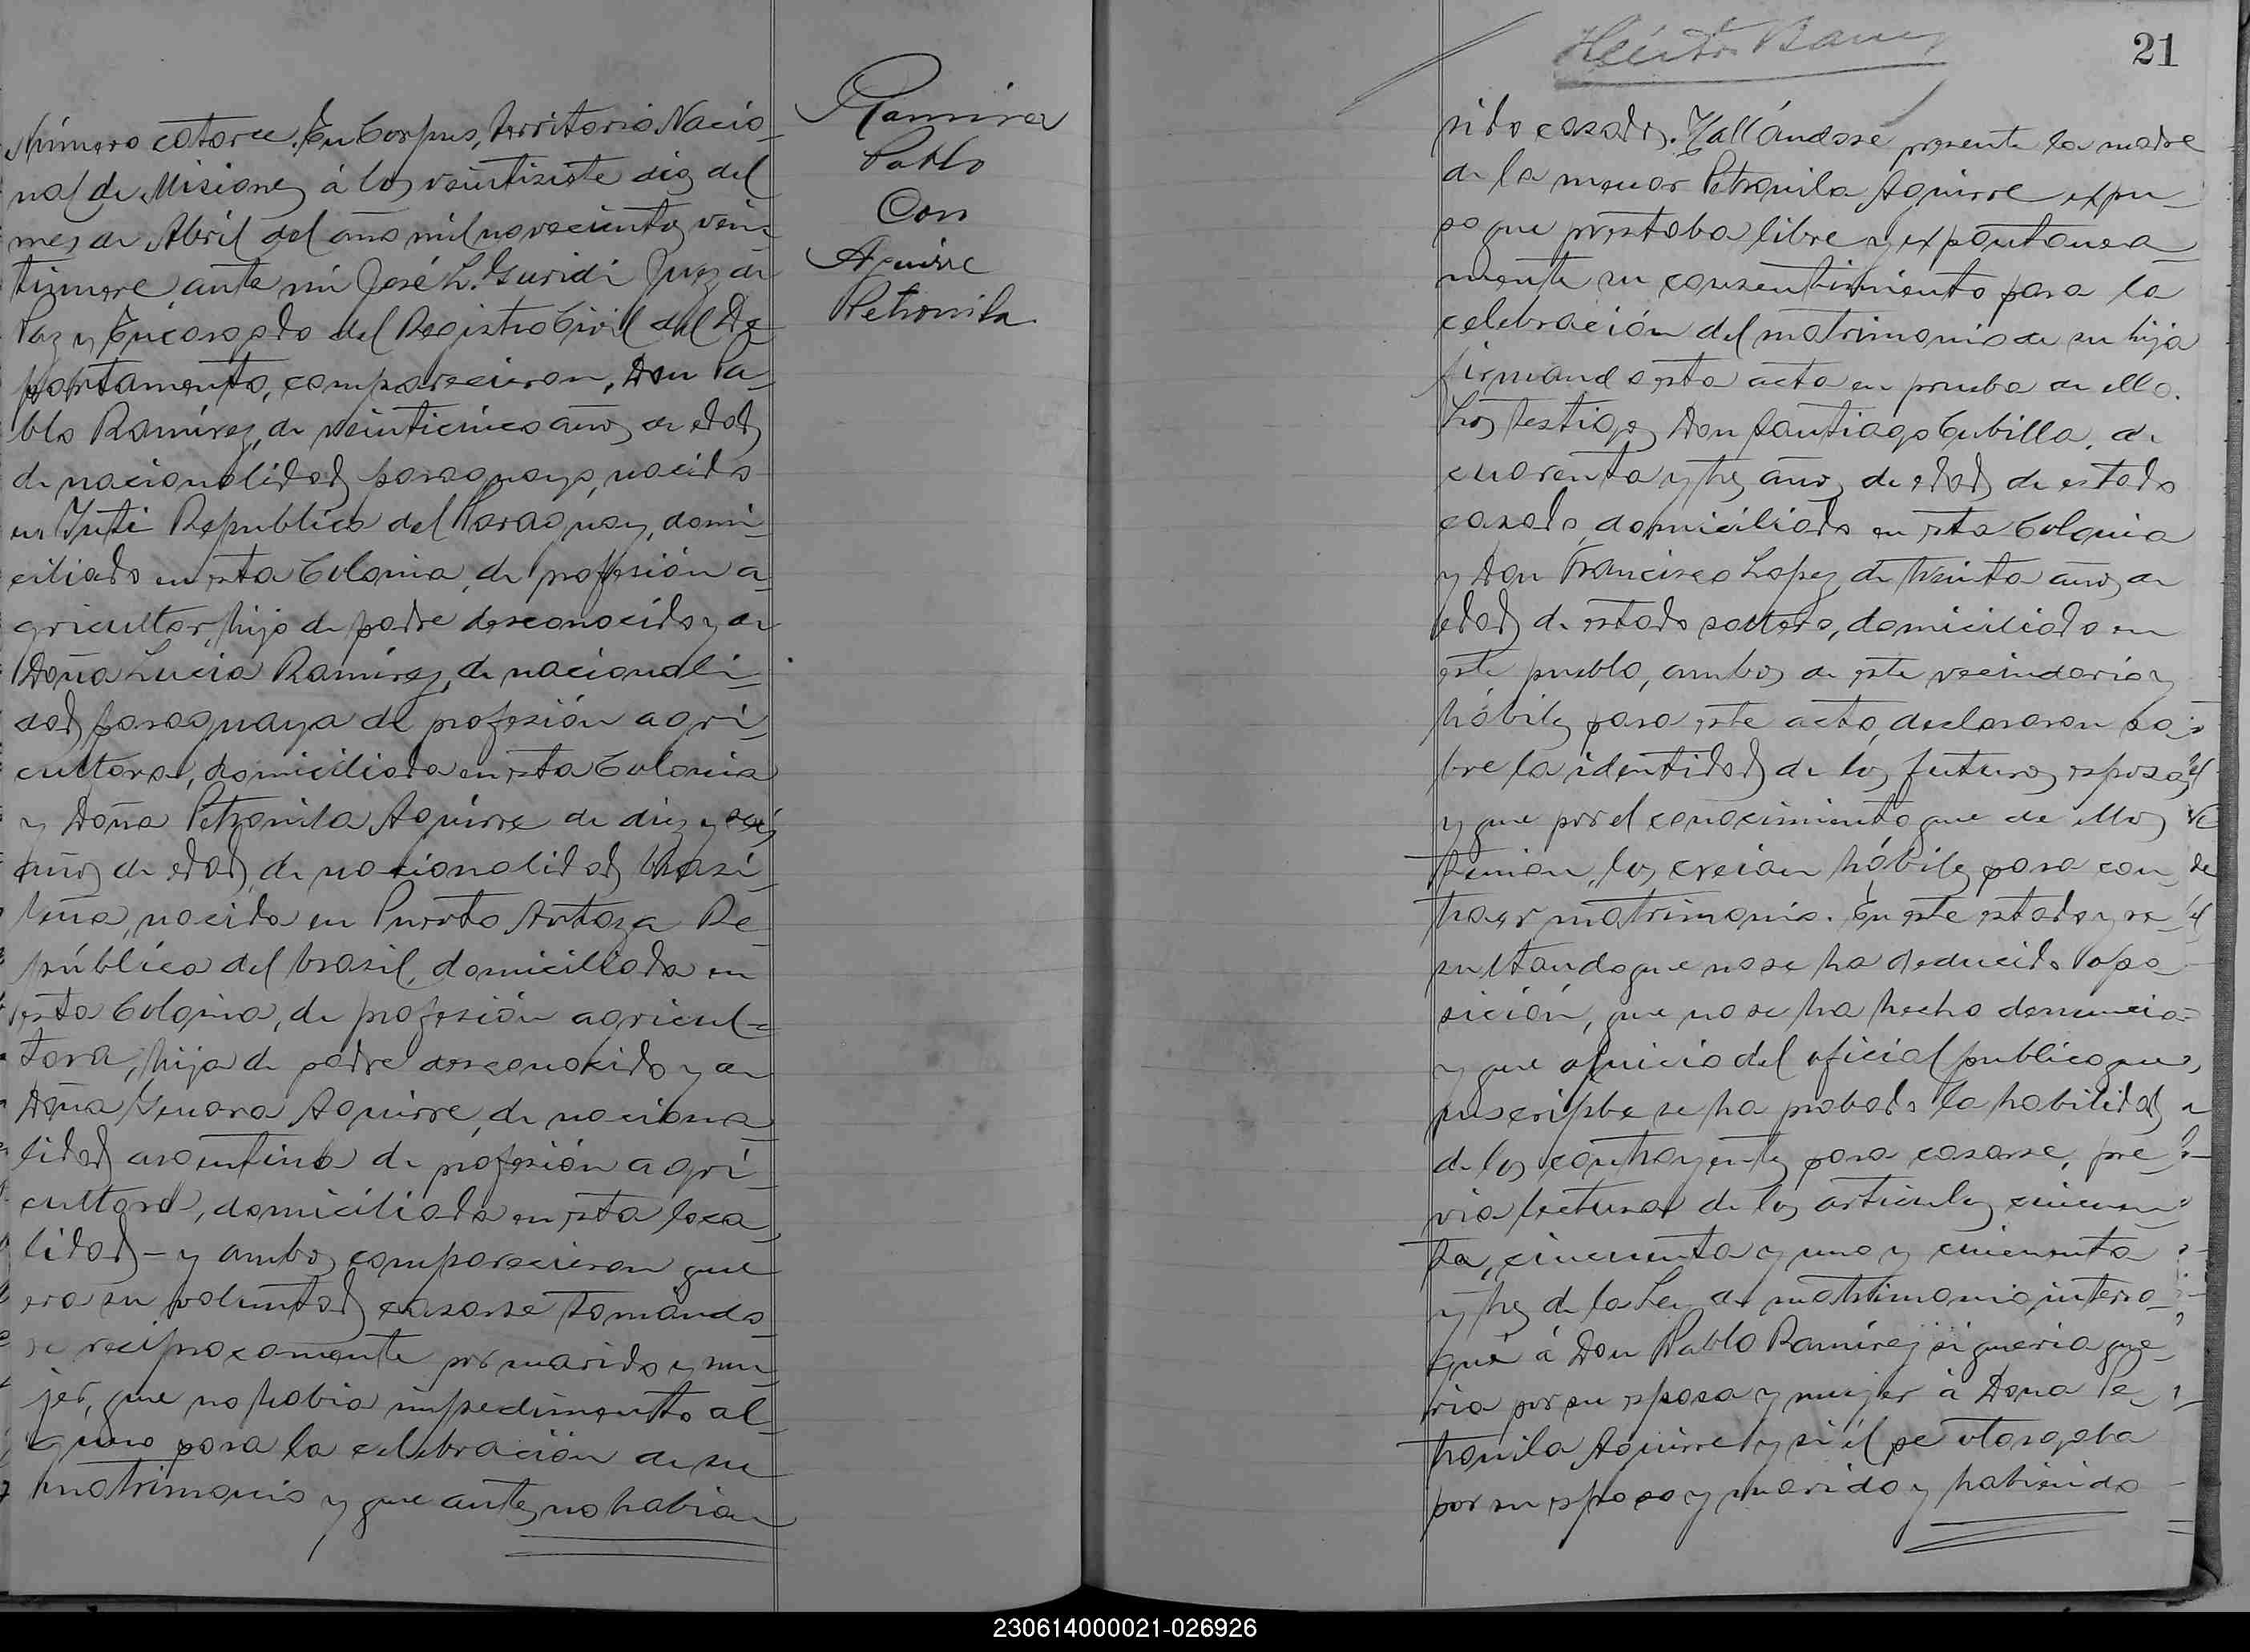 Número catorce. En Corpus, Territorio Nacio-
nal de Misiones á los veintisiete dias del
mes de Abril del año mil novecientos vein-
tinueve, ante mi José L. Guridi Juez de
Paz y Encargado del Registro Civil del De-
partamento, comparecieron, Don Pa-
blo Ramírez, de veinticinco años de edad
de nacionalidad paraguayo, nacido
en Yuti República del Paraguay, domi-
ciliado en esta Colonia, de profesión a-
gricultor, hijo de padre desconocido y de
Doña Lucia Ramírez, de nacionali-
dad paraguaya de profesión agri-
cultora, domiciliada en esta Colonia
y Doña Petronila Aguirre de diez y seis
años de edad, de nacionalidad brasi-
leña, nacida en Puerto Artaza Re-
pública del brasil, domiciliada en
esta Colonia, de profesión agricul-
tora, hija de padre desconocido y de
Doña Genara Aguirre, de naciona-
lidad argentina de profesión agri-
cultora, domiciliada en esta loca-
lidad - y ambos comparecieron que
era su voluntad casarse tomando-
se recíprocamente por marido y mu-
jer, que no habia impedimento al-
guno para la celebración de su
matrimonio y que antes no habian
Ramirez
Pablo
Con
Aguirre
Petronila
21
sido casados. Hallándose presente la madre
de la menor Petronila Aguirre expu-
so que prestaba libre y expontanea-
mente su consentimiento para la
celebración del matrimonio de su hija
firmando esta acta en prueba de ello.
Los testigos Don Santiago Cubilla, de
cuarenta y tres años de edad de estado
casado, domiciliado en esta Colonia
y Don Francisco Lopez de treinta años de
edad de estado soltero, domiciliado en
este pueblo, ambos de este vecindario y
hábiles para este acto, declararon so-
bre la identidad de los futuros esposos
y que por el conocimiento que de ellos
tenian, los creian hábiles para con-
traer matrimonio. En este estado y re-
sultando que no se ha deducido opo-
sición, que no se ha hecho denuncia
y que a juicio del oficial publico que
suscribe se ha probado la habilidad
de los contrayentes para casarse, pre-
via lectura de los articulos cincuen-
ta, cincuenta y uno y cincuenta
y tres de la Ley de matrimonio interro-
gué á Don Pablo Ramírez si queria que-
ria por su esposa y mujer á Dona Pe-
tronila Aguirre y si él se otorgaba
por su esposo y marido y habiendo
230614000021-026926